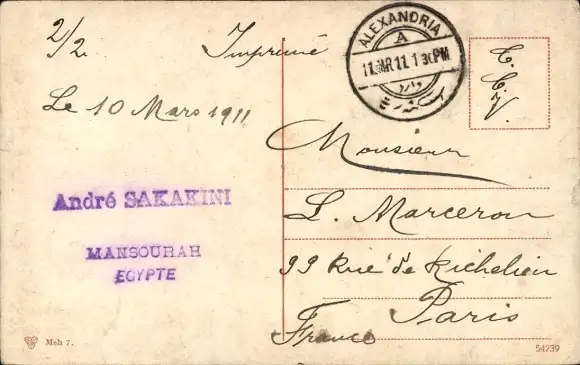 2/2 Imprimé
Le 10 Mars 1911
André SAKAKINI
MANSOURAH
EGYPTE
ALEXANDRIA
A
11.MR.11.1 30PM
T.
C.
V.
Monsieur
L. Marceron
99 Rue de Richelieu
Paris
France
Msh 7.
54239